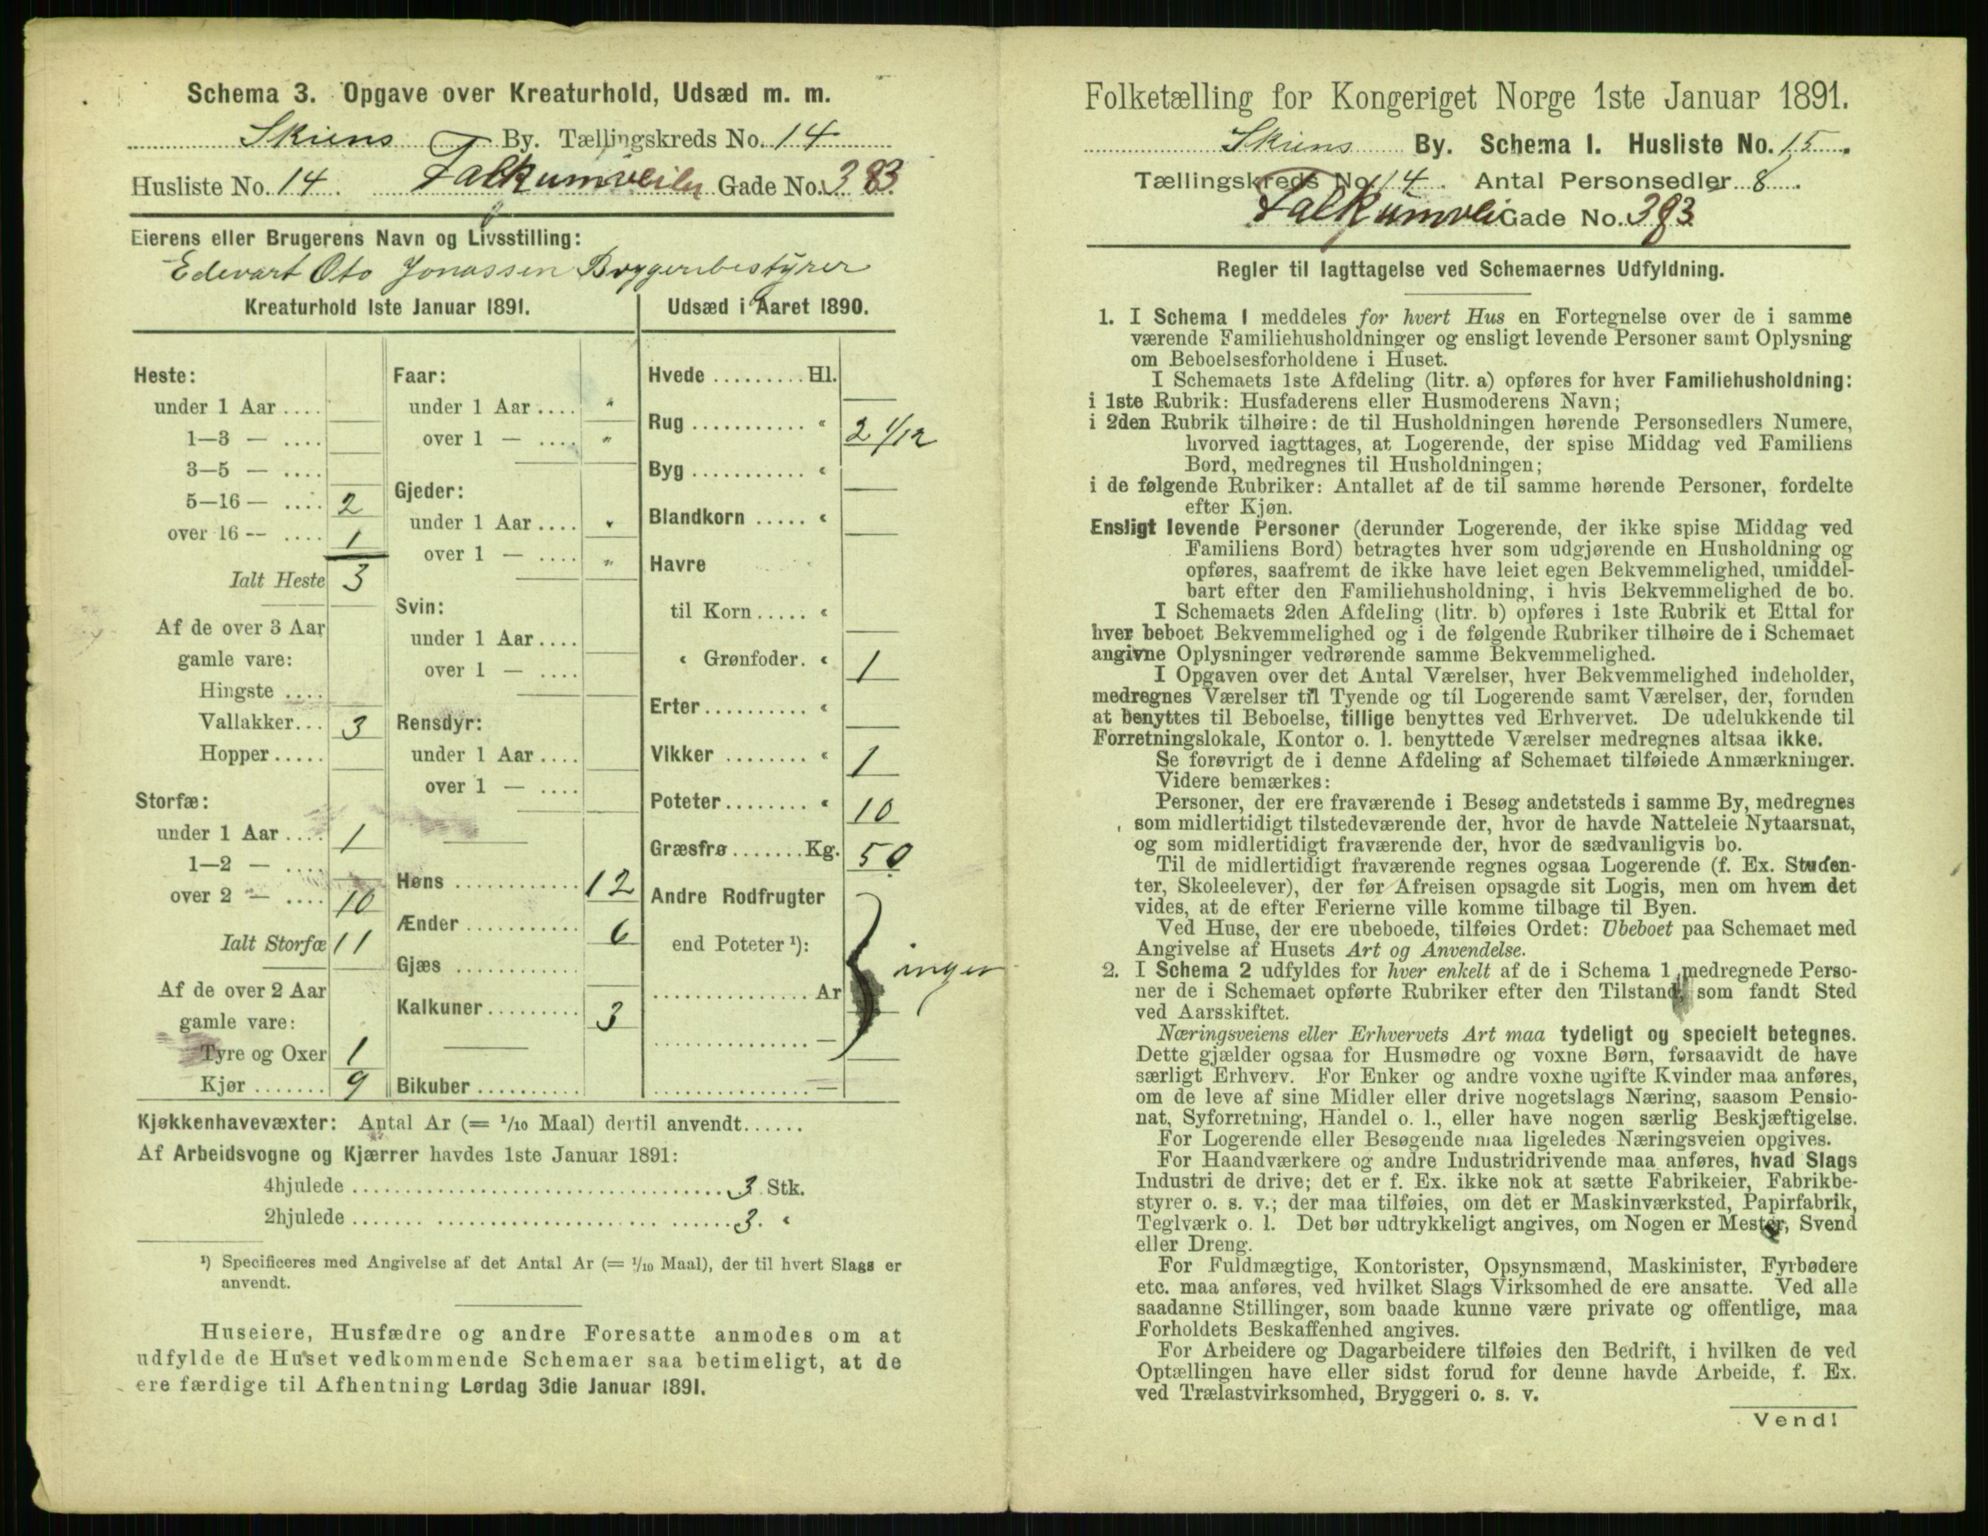 Schema 3. Opgave over Kreaturhold, Udsæd m. m.
Skiens By. Tællingskreds No. 14
Husliste No. 14. Falkumveien Gade No. 383.
Eierens eller Brugerens Navn og Livsstilling:
Edevart Oto Jonassen Bryggeribestyrer
Kreaturhold 1ste Januar 1891.
Heste:
under 1 Aar ....
1—3 — ....
3—5 — ....
5—16 — .... 2
over 16 — .... 1
Ialt Heste 3
Af de over 3 Aar
gamle vare:
Hingste ....
Vallakker... 3
Hopper.....
Storfæ:
under 1 Aar .... 1
1—2 — ....
over 2 — .... 10
Ialt Storfæ 11
Af de over 2 Aar
gamle vare:
Tyre og Oxer 1
Kjør ....... 9
Faar:
under 1 Aar .... "
over 1 — .... "
Gjeder:
under 1 Aar .... "
over 1 — .... "
Svin:
under 1 Aar ....
over 1 — ....
Rensdyr:
under 1 Aar ....
over 1 — ....
Høns ............ 12
Ænder ........... 6
Gjæs ............
Kalkuner ......... 3
Bikuber ..........
Udsæd i Aaret 1890.
Hvede ......... Hl.
Rug ........... " 2 1/12
Byg ........... "
Blandkorn ..... "
Havre
til Korn ..... "
" Grønfoder. " 1
Erter .......... "
Vikker ........ " 1
Poteter ........ " 10
Græsfrø ....... Kg. 50
Andre Rodfrugter
end Poteter ¹): ingen
............... Ar
............... —
............... —
Kjøkkenhavevæxter: Antal Ar (= 1/10 Maal) dertil anvendt......
Af Arbeidsvogne og Kjærrer havdes 1ste Januar 1891:
4hjulede ........ 3 Stk.
2hjulede ........ 3. "
¹) Specificeres med Angivelse af det Antal Ar (= 1/10 Maal), der til hvert Slags er
anvendt.
Huseiere, Husfædre og andre Foresatte anmodes om at
udfylde de Huset vedkommende Schemaer saa betimeligt, at de
ere færdige til Afhentning Lørdag 3die Januar 1891.
Folketælling for Kongeriget Norge 1ste Januar 1891.
Skiens By. Schema 1. Husliste No. 15.
Tællingskreds No. 14. Antal Personsedler 8.
Falkumvei Gade No. 383
Regler til Iagttagelse ved Schemaernes Udfyldning.
1. I Schema 1 meddeles for hvert Hus en Fortegnelse over de i samme
værende Familiehusholdninger og ensligt levende Personer samt Oplysning
om Beboelsesforholdene i Huset.
I Schemaets 1ste Afdeling (litr. a) opføres for hver Familiehusholdning:
i 1ste Rubrik: Husfaderens eller Husmoderens Navn;
i 2den Rubrik tilhøire: de til Husholdningen hørende Personsedlers Numere,
hvorved iagttages, at Logerende, der spise Middag ved Familiens
Bord, medregnes til Husholdningen;
i de følgende Rubriker: Antallet af de til samme hørende Personer, fordelte
efter Kjøn.
Ensligt levende Personer (derunder Logerende, der ikke spise Middag ved
Familiens Bord) betragtes hver som udgjørende en Husholdning og
opføres, saafremt de ikke have leiet egen Bekvemmelighed, umiddel-
bart efter den Familiehusholdning, i hvis Bekvemmelighed de bo.
I Schemaets 2den Afdeling (litr. b) opføres i 1ste Rubrik et Ettal for
hver beboet Bekvemmelighed og i de følgende Rubriker tilhøire de i Schemaet
angivne Oplysninger vedrørende samme Bekvemmelighed.
I Opgaven over det Antal Værelser, hver Bekvemmelighed indeholder,
medregnes Værelser til Tyende og til Logerende samt Værelser, der, foruden
at benyttes til Beboelse, tillige benyttes ved Erhvervet. De udelukkende til
Forretningslokale, Kontor o. l. benyttede Værelser medregnes altsaa ikke.
Se forøvrigt de i denne Afdeling af Schemaet tilføiede Anmærkninger.
Videre bemærkes:
Personer, der ere fraværende i Besøg andetsteds i samme By, medregnes
som midlertidigt tilstedeværende der, hvor de havde Natteleie Nytaarsnat,
og som midlertidigt fraværende der, hvor de sædvanligvis bo.
Til de midlertidigt fraværende regnes ogsaa Logerende (f. Ex. Studen-
ter, Skoleelever), der før Afreisen opsagde sit Logis, men om hvem det
vides, at de efter Ferierne ville komme tilbage til Byen.
Ved Huse, der ere ubeboede, tilføies Ordet: Ubeboet paa Schemaet med
Angivelse af Husets Art og Anvendelse.
2. I Schema 2 udfyldes for hver enkelt af de i Schema 1 medregnede Perso-
ner de i Schemaet opførte Rubriker efter den Tilstand, som fandt Sted
ved Aarsskiftet.
Næringsveiens eller Erhvervets Art maa tydeligt og specielt betegnes.
Dette gjælder ogsaa for Husmødre og voxne Børn, forsaavidt de have
særligt Erhverv. For Enker og andre voxne ugifte Kvinder maa anføres,
om de leve af sine Midler eller drive nogetslags Næring, saasom Pensio-
nat, Syforretning, Handel o. l., eller have nogen særlig Beskjæftigelse.
For Logerende eller Besøgende maa ligeledes Næringsveien opgives.
For Haandværkere og andre Industridrivende maa anføres, hvad Slags
Industri de drive; det er f. Ex. ikke nok at sætte Fabrikeier, Fabrikbe-
styrer o. s. v.; der maa tilføies, om det er Maskinværksted, Papirfabrik,
Teglværk o. l. Det bør udtrykkeligt angives, om Nogen er Mester, Svend
eller Dreng.
For Fuldmægtige, Kontorister, Opsynsmænd, Maskinister, Fyrbødere
etc. maa anføres, ved hvilket Slags Virksomhed de ere ansatte. Ved alle
saadanne Stillinger, som baade kunne være private og offentlige, maa
Forholdets Beskaffenhed angives.
For Arbeidere og Dagarbeidere tilføies den Bedrift, i hvilken de ved
Optællingen have eller sidst forud for denne havde Arbeide, f. Ex.
ved Trælastvirksomhed, Bryggeri o. s. v.
Vend!